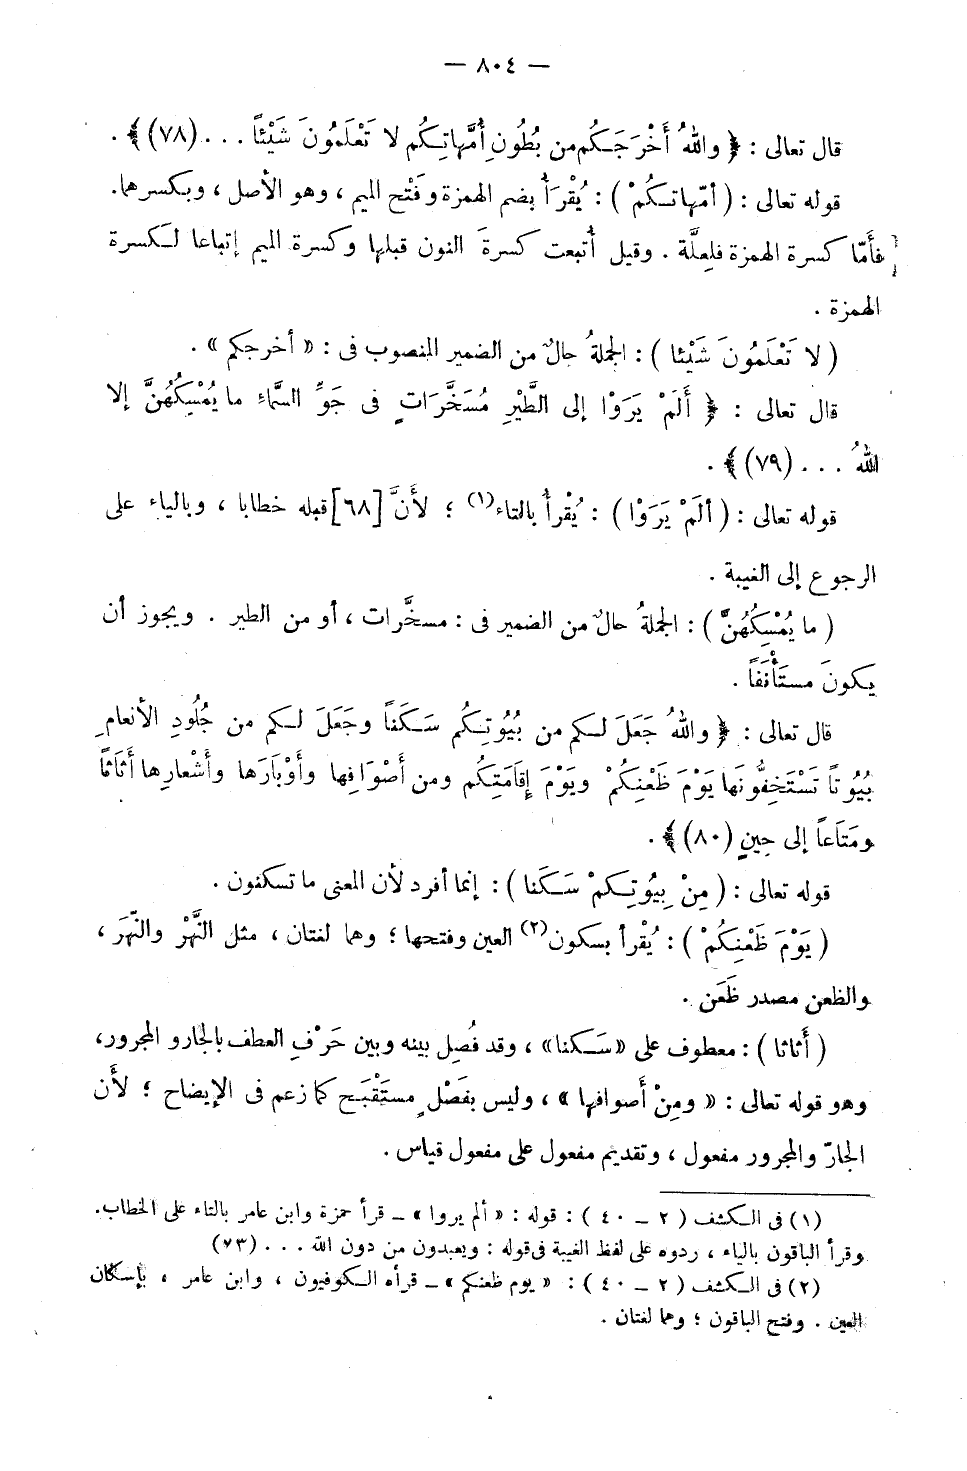 — ٨٠٤ —
قال تعالى : ﴿ واللهُ أَخْرَجَكُم من بُطُونِ أُمَّهاتِكُم لا تَعْلَمُونَ شَيْئاً ... (٧٨)﴾ .
قوله تعالى : ( أمّهاتكُمْ ) : يُقْرَأ بضم الهمزة وفَتْح الميم ، وهو الأصل ، وبكسرهما.
فأَمّا كسرة الهمزة فلِعلَّة . وقيل أُتبعت كسرةَ النون قبلها وكسرة الميم إتباعا لكسرة
الهمزة .
( لا تَعْلَمُونَ شَيْئا ) : الجملةُ حالٌ من الضمير المنصوب فى : « أخرجكم » .
قال تعالى : ﴿ أَلَمْ يَرَوْا إلى الطَّيْرِ مُسَخَّرَاتٍ فى جَوِّ السَّماءِ ما يُمْسِكُهُنَّ إلا
اللهُ ... (٧٩)﴾ .
قوله تعالى : ( أَلَمْ يَرَوْا ) : يُقْرأُ بالتاء(١) ؛ لأَنَّ [٦٨]قبله خطابا ، وبالياء على
الرجوع إلى الغيبة .
( ما يُمْسِكُهُنَّ ) : الجملةُ حالٌ من الضمير فى : مسخَّرات ، أو من الطير . ويجوز أن
يكونَ مستَأْنَفاً .
قال تعالى : ﴿ واللهُ جَعَلَ لكم من بُيُوتِكُم سَكَناً وجَعَلَ لكم من جُلُودِ الأنعامِ
بُيُوتاً تَسْتَخِفُّونَها يَوْمَ ظَعْنِكُمْ ويَوْمَ إِقَامَتِكُم ومن أَصْوَافِها وأَوْبَارَها وأَشْعارِها أَثَاثاً
ومَتَاعاً إلى حِينٍ (٨٠)﴾ .
قوله تعالى : ( مِنْ بِيُوتِكمْ سَكَنا ) : إنما أفرد لأن المعنى ما تسكنون .
( يَوْمَ ظَعْنِكُمْ ) : يُقْرأ بسكون(٢) العين وفتحها ؛ وهما لغتان ، مثل النَّهْر والنَّهَر ،
والظعن مصدر ظَعَن .
( أَثاثا ) : معطوف على «سَكنا» ، وقد فُصِل بينه وبين حَرْفِ العطف بالجار و المجرور،
وهو قوله تعالى : « ومِنْ أَصوافها » ، وليس بفَصْلٍ مستَقْبَح كما زعم فى الإيضاح ؛ لأَن
الجارّ والمجرور مفعول ، وتقديم مفعول على مفعول قياس .
(١) فى الكشف ( ٢ – ٤٠ ) : قوله : « ألم يروا » – قرأ حمزة وابن عامر بالتاء على الخطاب.
وقرأ الباقون بالياء ، ردوه على لفظ الغيبة فى قوله : ويعبدون من دون الله ... (٧٣)
(٢) فى الكشف ( ٢ – ٤٠ ) : « يوم ظعنكم » – قرأه الكوفيون ، وابن عامر ، بإسكان
العين . وفتح الباقون ؛ وهما لغتان .